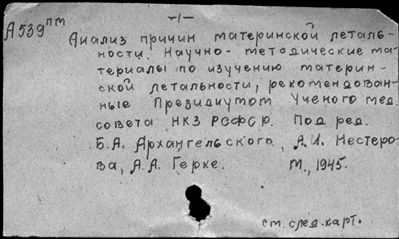 -1-
А539пт
Анализ причин материнской леталь-
ности. Научно-методические ма-
териалы по изучению материн-
ской летальности, рекомендован-
ные Президиумом Ученого мед.
совета НКЗ РСФСР. Под ред.
Б.А. Архангельского, А.И. Нестеро-
ва, А.А. Герке. М., 1945.
ст. след. карт.